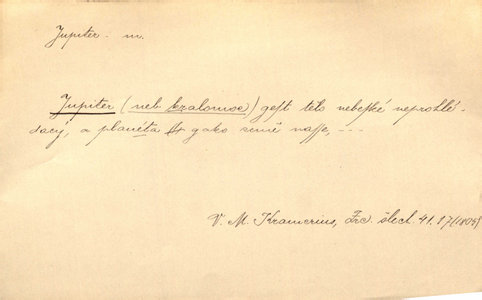 Jupiter - m.
Jupiter (neb kralomoc) gest tělo nebeſké neprohlé-
dacý, a planéta gako země naſſe, ---
V. M. Kramerius, Zrc. šlech. 41. 17 (1805)